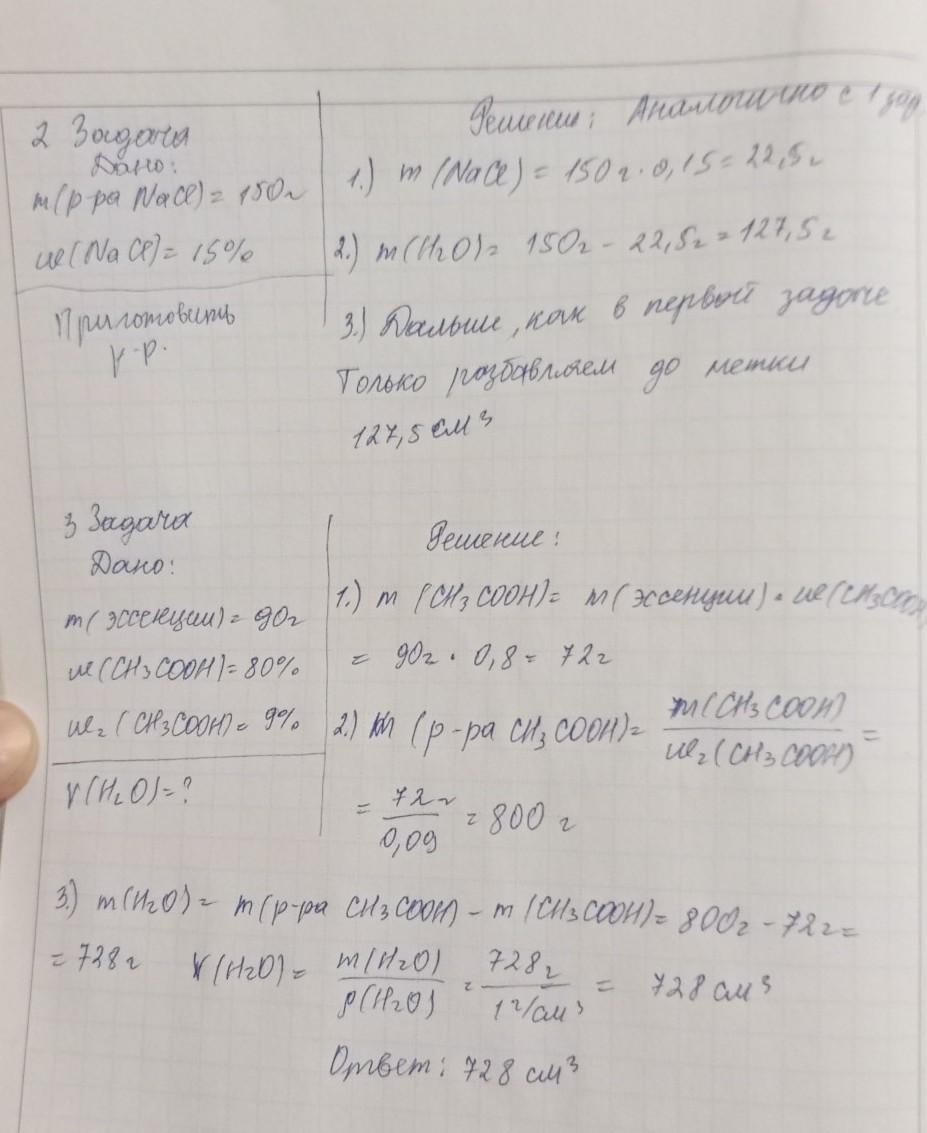 2 Задача
Дано:
m(р-ра NaCl) = 150г
ω(NaCl) = 15%
Приготовить
р-р.
Решение: Аналогично с 1 зад.
1.) m (NaCl) = 150г · 0,15 = 22,5г
2.) m(H₂O) = 150г - 22,5г = 127,5г
3.) Дальше, как в первой задаче
Только разбавляем до метки
127,5 см³
3 Задача
Дано:
m(эссенции) = 90г
ω(CH₃COOH) = 80%
ω₂(CH₃COOH) = 9%
V(H₂O) = ?
Решение:
1.) m (CH₃COOH) = m(эссенции) · ω(CH₃COOH)
= 90г · 0,8 = 72г
2.) m (р-ра CH₃COOH) = m(CH₃COOH) / ω₂(CH₃COOH) =
= 72г / 0,09 = 800 г
3.) m(H₂O) = m(р-ра CH₃COOH) - m(CH₃COOH) = 800г - 72г =
= 728г V(H₂O) = m(H₂O) / ρ(H₂O) = 728г / 1 г/см³ = 728 см³
Ответ: 728 см³